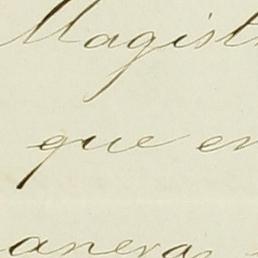 Magist
que en
anera